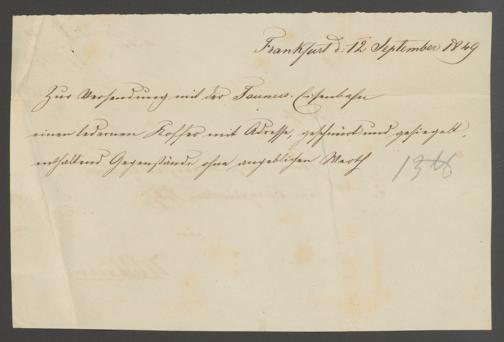 Frankfurt d. 12 September 1849
Zur Versendung mit der Taunus-Eisenbahn
einen ledernen Koffer mit Adresse, geschnürt und gesiegelt,
enthaltend Gegenstände ohne angeblichen Werth